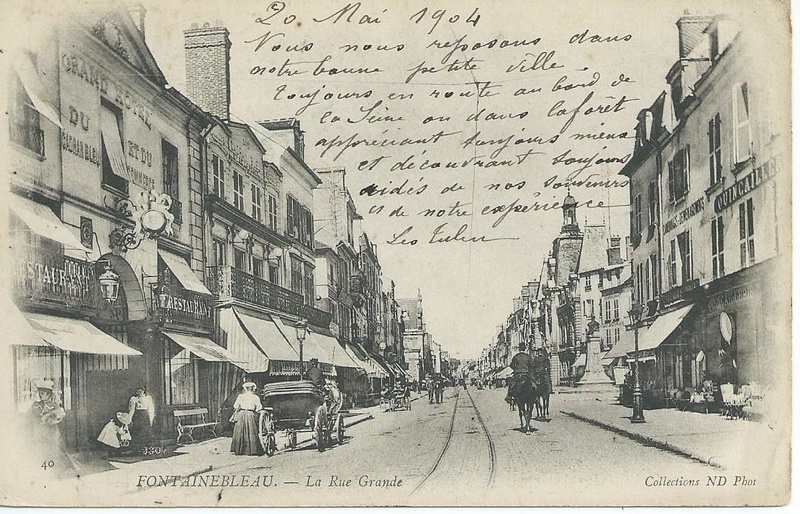 20 Mai 1904
Vous nous reposons dans
notre bonne petite ville.
Toujours en route au bord de
la Seine ou dans la forêt
appréciant toujours mieux
et découvrant toujours
aidés de nos souvenirs
et de notre expérience
Les
GRAND HOTEL
DU
CADRAN BLEU
ET DU
RESTAURANT
RESTAURANT
QUINCAILLERIE
40
FONTAINEBLEAU. — La Rue Grande
Collections ND Phot